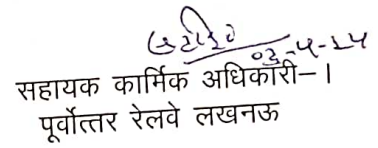 सहायक कार्मिक अधिकारी-।
पूर्वोत्तर रेलवे लखनऊ